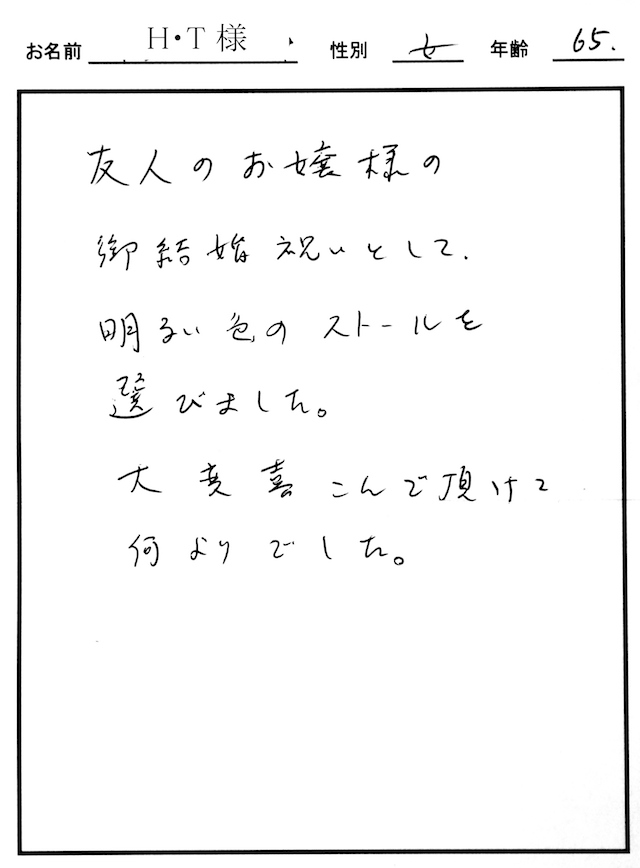 お名前 H・T様 性別 女 年齢 65.
友人のお嬢様の
御結婚祝いとして、
明るい色のストールを
選びました。
大変喜こんで頂けて
何よりでした。